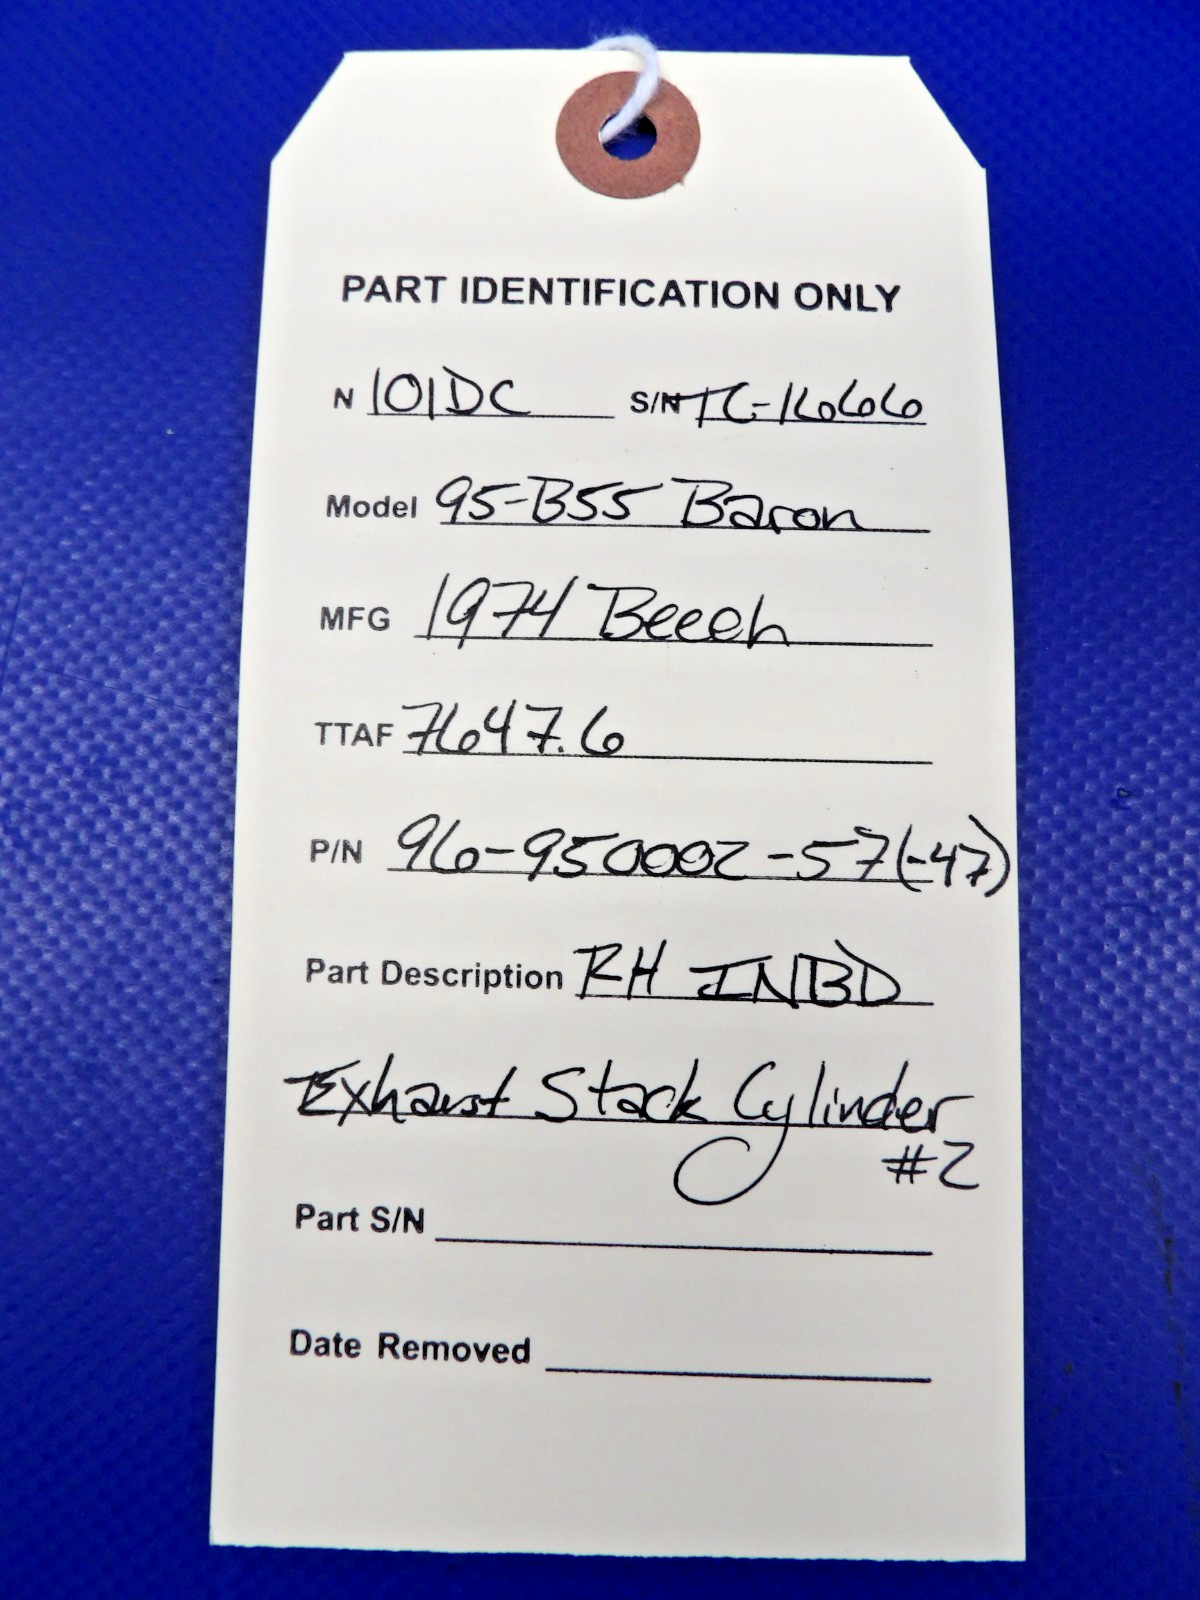 PART IDENTIFICATION ONLY
N 101DC S/N TC-1666
Model 95-B55 Baron
MFG 1974 Beech
TTAF 7647.6
P/N 96-950002-57(-47)
Part Description RH INBD
Exhaust Stack Cylinder
#2
Part S/N
Date Removed